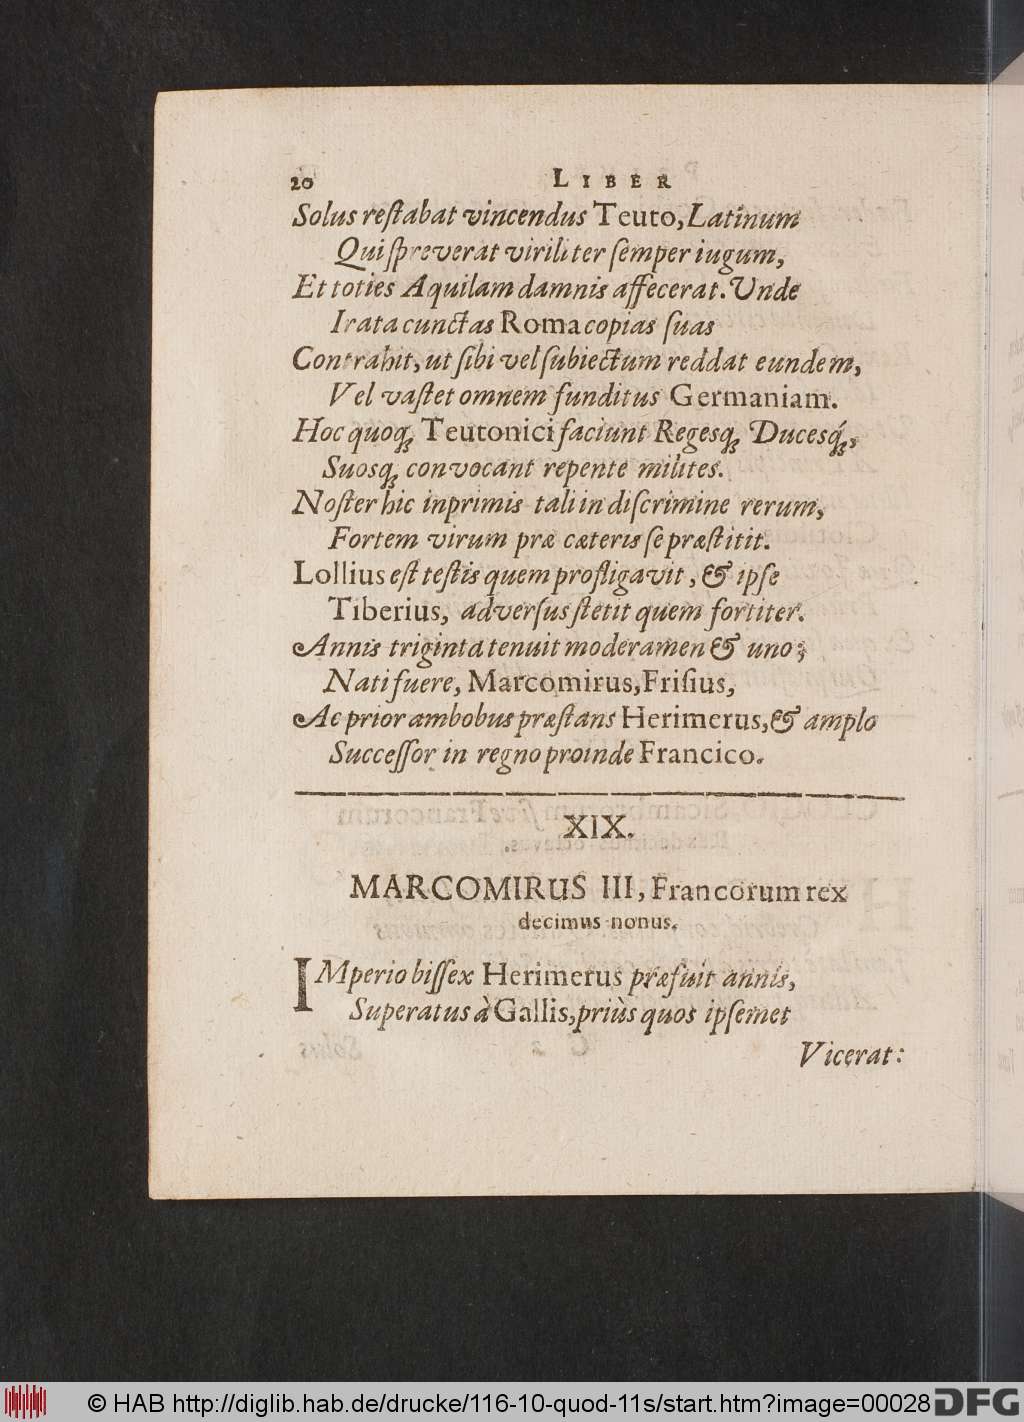 20 LIBER
Solus reſtabat vincendus Teuto, Latinum
Qui ſpreverat viriliter ſemper iugum,
Et toties Aquilam damnis affecerat. Unde
Irata cunctas Roma copias ſuas
Contrahit, ut ſibi vel ſubiectum reddat eundem,
Vel vaſtet omnem funditus Germaniam.
Hoc quoq́; Teutonici faciunt Regesq́; Ducesq́;,
Suosq́; convocant repente milites.
Noſter hic inprimis tali in diſcrimine rerum,
Fortem virum præ cæteris ſe præſtitit.
Lollius eſt teſtis quem profligavit, & ipſe
Tiberius, adverſus ſtetit quem fortiter.
Annis triginta tenuit moderamen & uno;
Nati fuere, Marcomirus, Friſius,
Ac prior ambobus præſtans Herimerus, & amplo
Succeſſor in regno proinde Francico.
XIX.
MARCOMIRUS III, Francorum rex
decimus nonus.
IMperio biſſex Herimerus præfuit annis,
Superatus à Gallis, priùs quos ipſemet
Vicerat:
© HAB http://diglib.hab.de/drucke/116-10-quod-11s/start.htm?image=00028
DFG